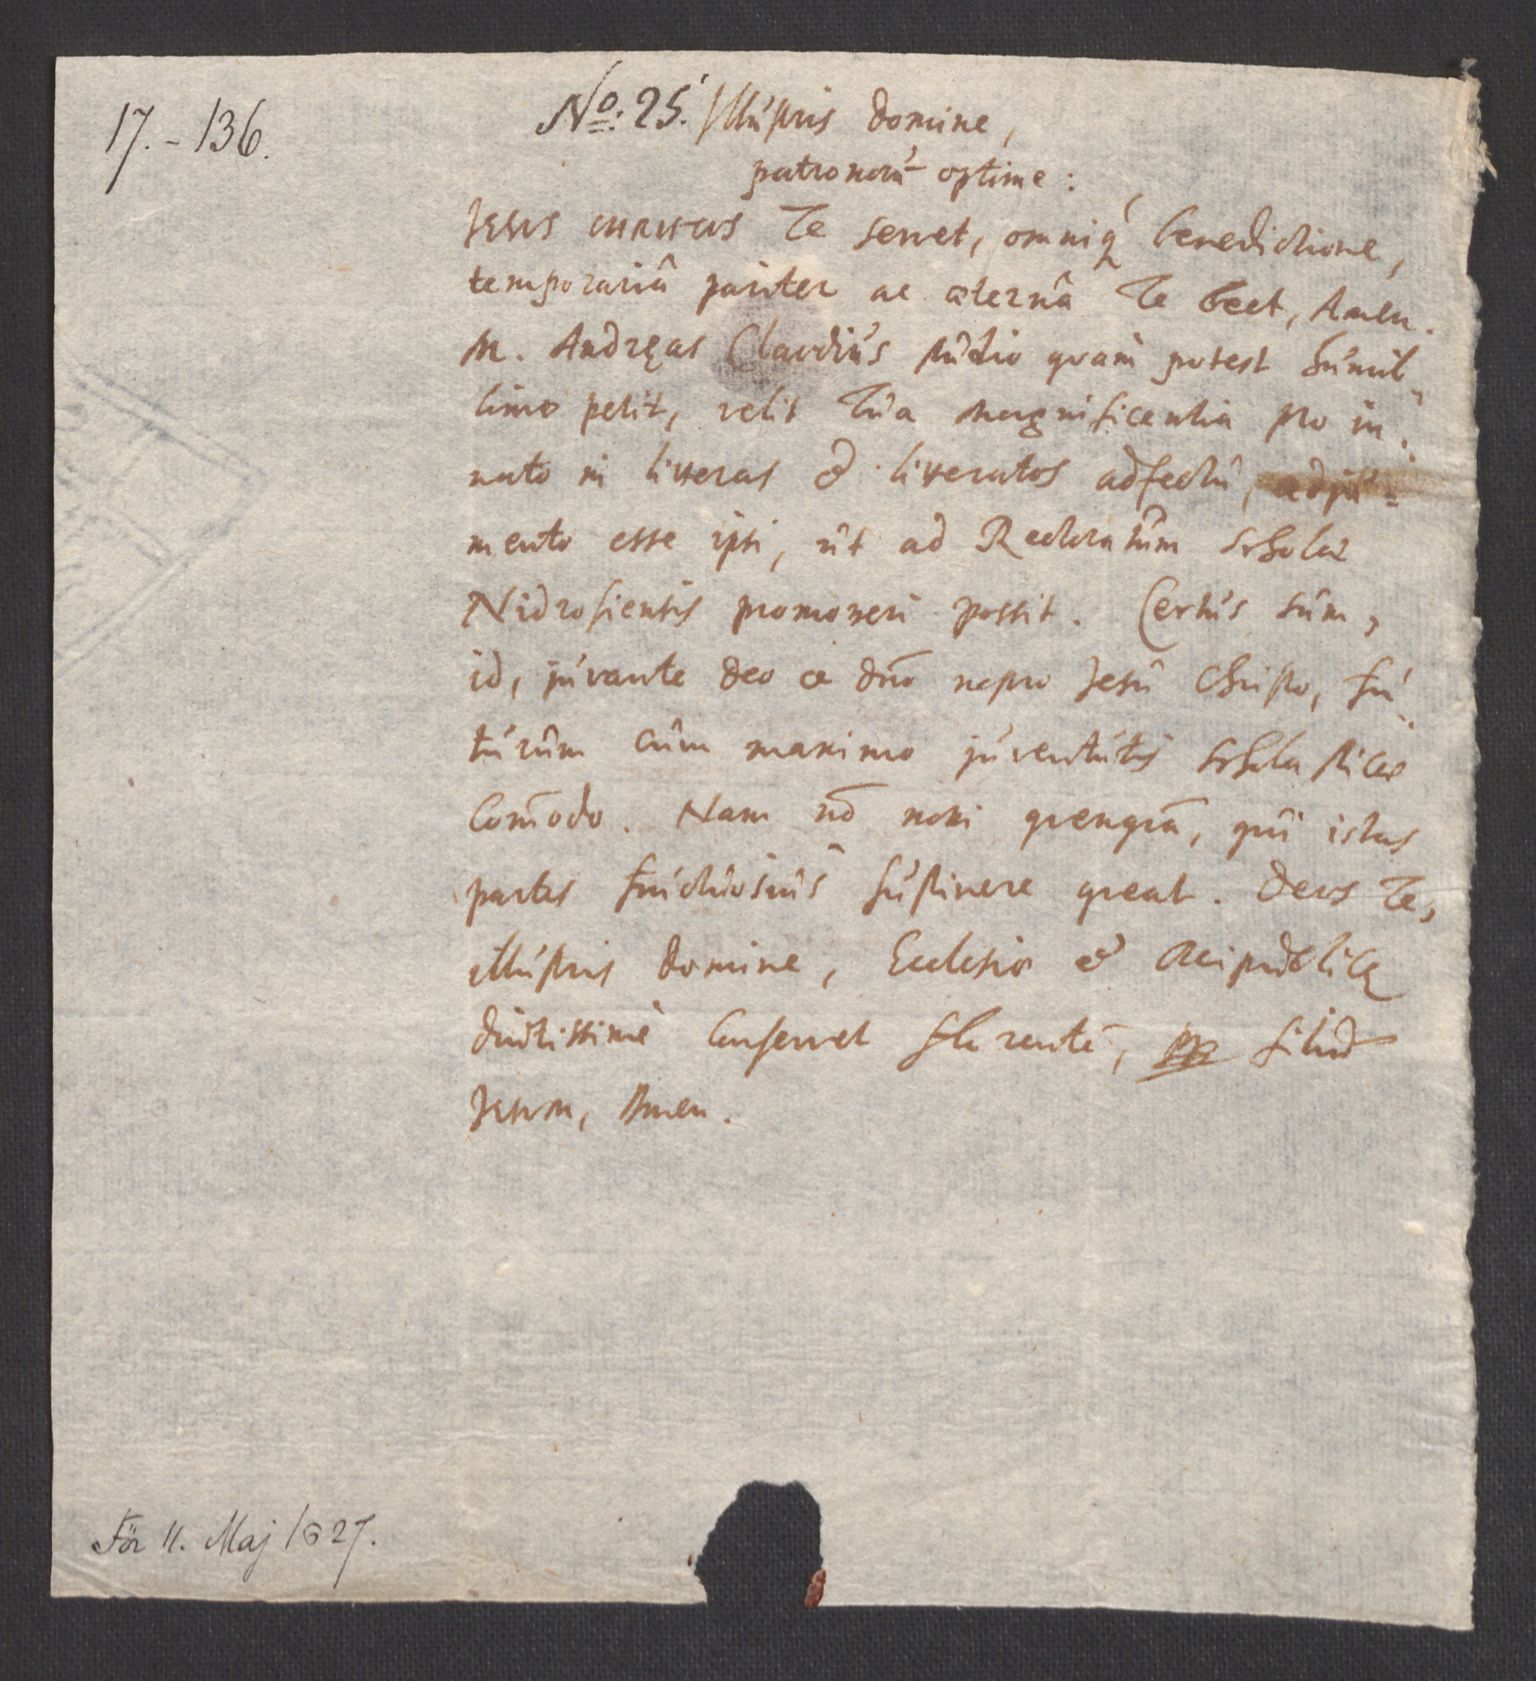 17.-136.
No: 25. Illustris Domine,
patronorū optime:
Jesus Christus Te servet, omniq́ benedictione,
temporariâ pariter ac æternâ Te beet, Amen.
M. Andręas Claudius studio quam potest humil-
limo petit, velit Tua magnificentia pro in-
nato in litteras & literatos adfectu, adju-
mento esse ipsi, ut ad Rectoratum Scholæ
Nidrosiensis promoveri possit. Certus sum,
id, juvante Deo ac dn̄o nostro Jesu Christo, fu-
turum cum maximo juventutis scholasticæ
com̄odo. Nam nō novi quenquā, qui istas
partes fructuosius sustinere queat. Deus Te,
illustris Domine, Ecclesiæ & Reipublicę
diutissimè conservet florentē, filiū
Jesum, Amen.
För 11. Maj 1627.